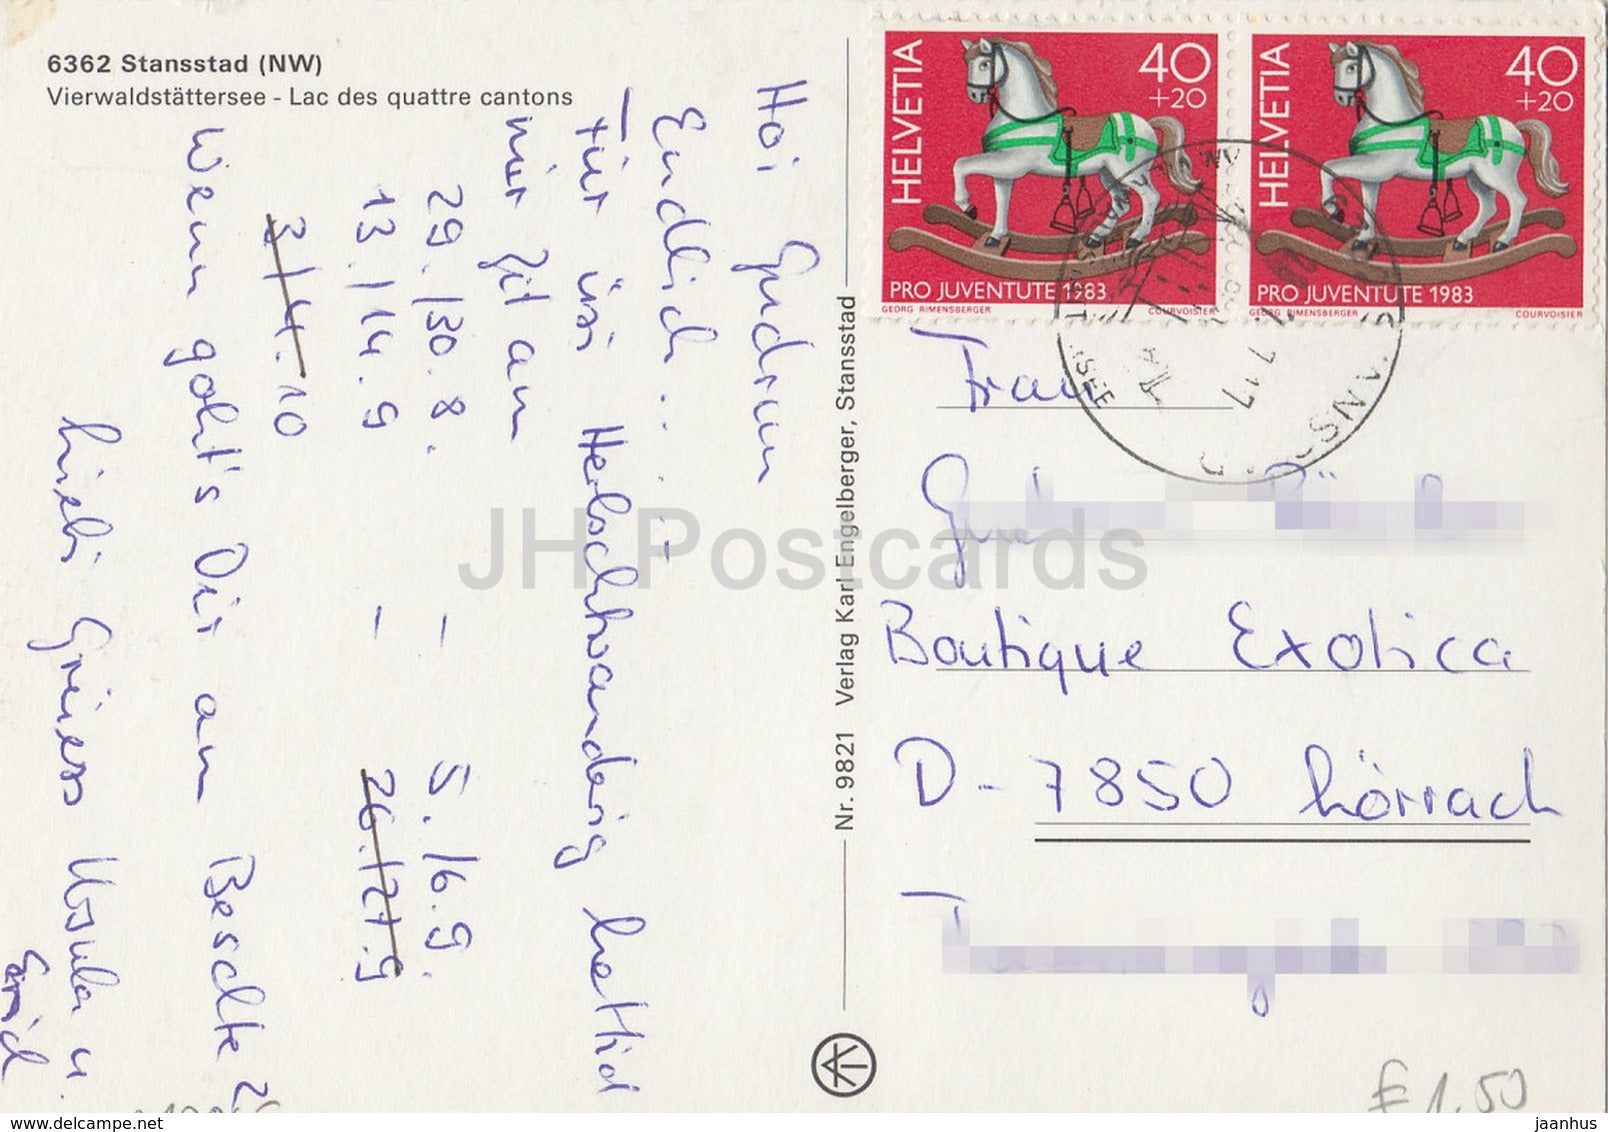 6362 Stansstad (NW)
Vierwaldstättersee - Lac des quattre cantons
Hoi Gudrun
Endlich . . . . !
Für üsi Herbschtwanderig hettid
mir Zit am
29./30. 8. - 5./6. 9.
13./14. 9 - 26./27. 9
3/4. 10
Wenn goht's Dir am Beschte ?
Liebi Grüess Ursula u.
Nr. 9821 Verlag Karl Engelberger, Stansstad
HELVETIA
40
+20
PRO JUVENTUTE 1983
GEORG RIMENSBERGER
COURVOISIER
HELVETIA
40
+20
PRO JUVENTUTE 1983
GEORG RIMENSBERGER
COURVOISIER
Frau
Boutique Exotica
D-7850 Lörrach
€ 1.50
JH Postcards
www.delcampe.net
jaanhus